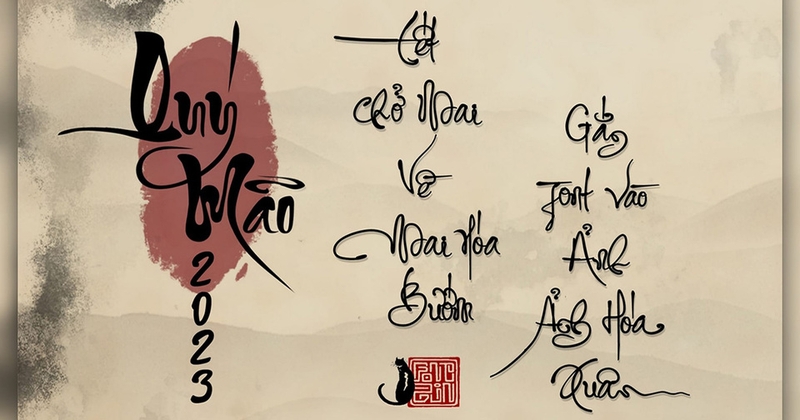 Quý
Mão
2023
Tết
Chở Mai
Về
Mai Hóa
Bướm
Gắn
Font Vào
Ảnh
Ảnh Hóa
Xuân